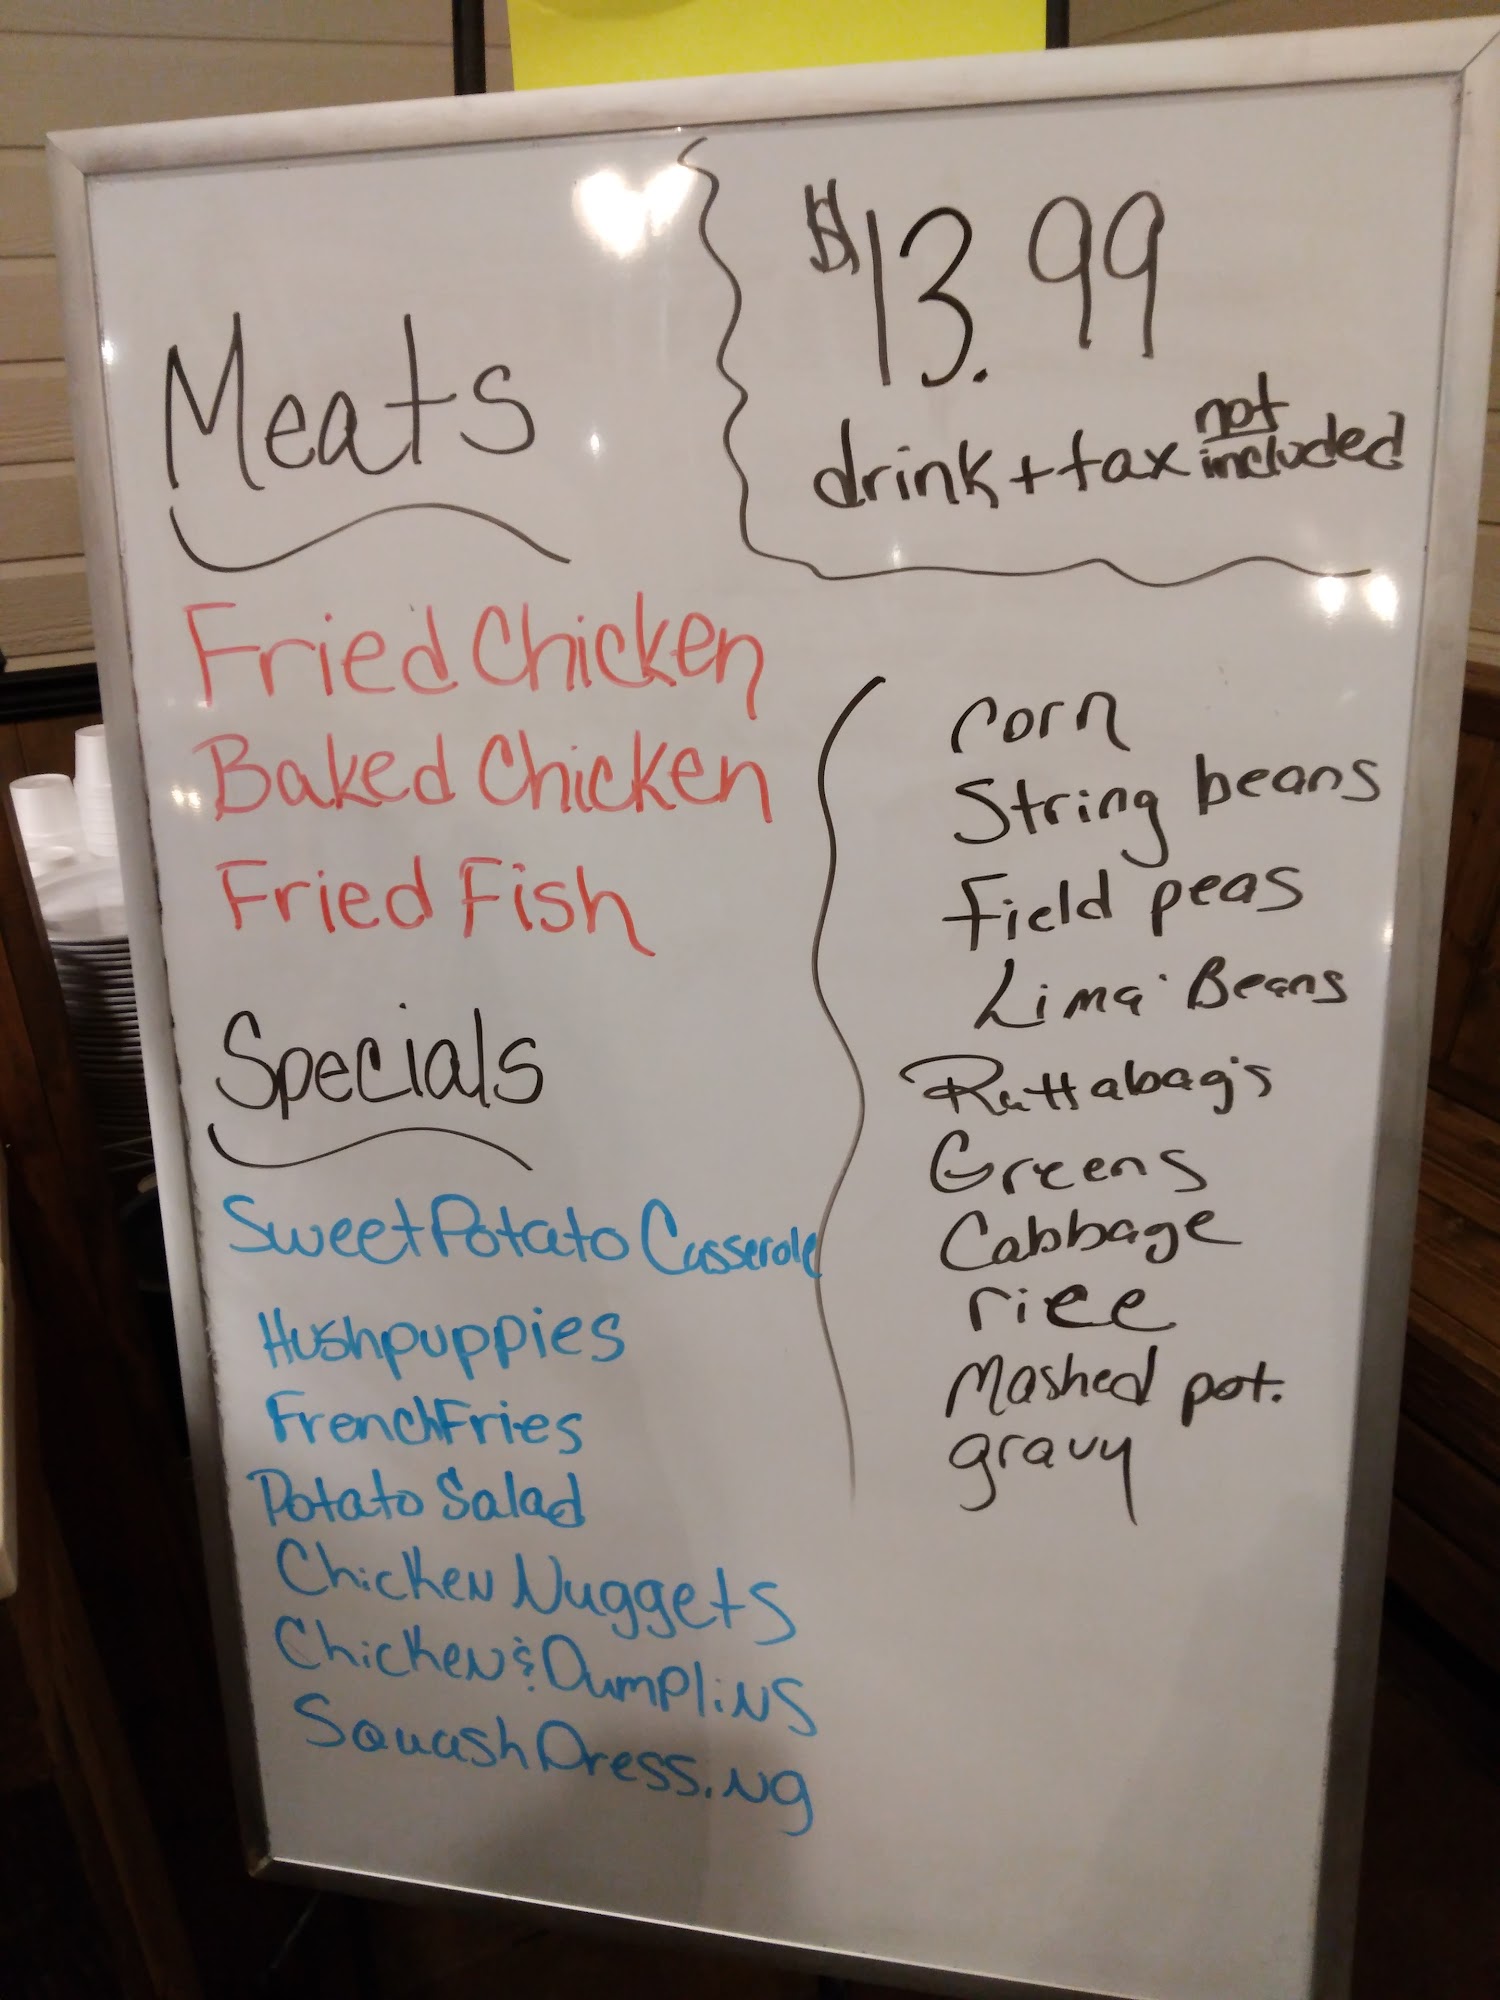 $13.99
drink + tax not included
Meats
Fried Chicken
Baked Chicken
Fried Fish
Specials
Sweet Potato Casserole
Hushpuppies
French Fries
Potato Salad
Chicken Nuggets
Chicken & Dumplins
Squash Dressing
corn
String beans
field peas
Lima Beans
Ruttabag's
Greens
Cabbage
rice
Mashed pot.
gravy